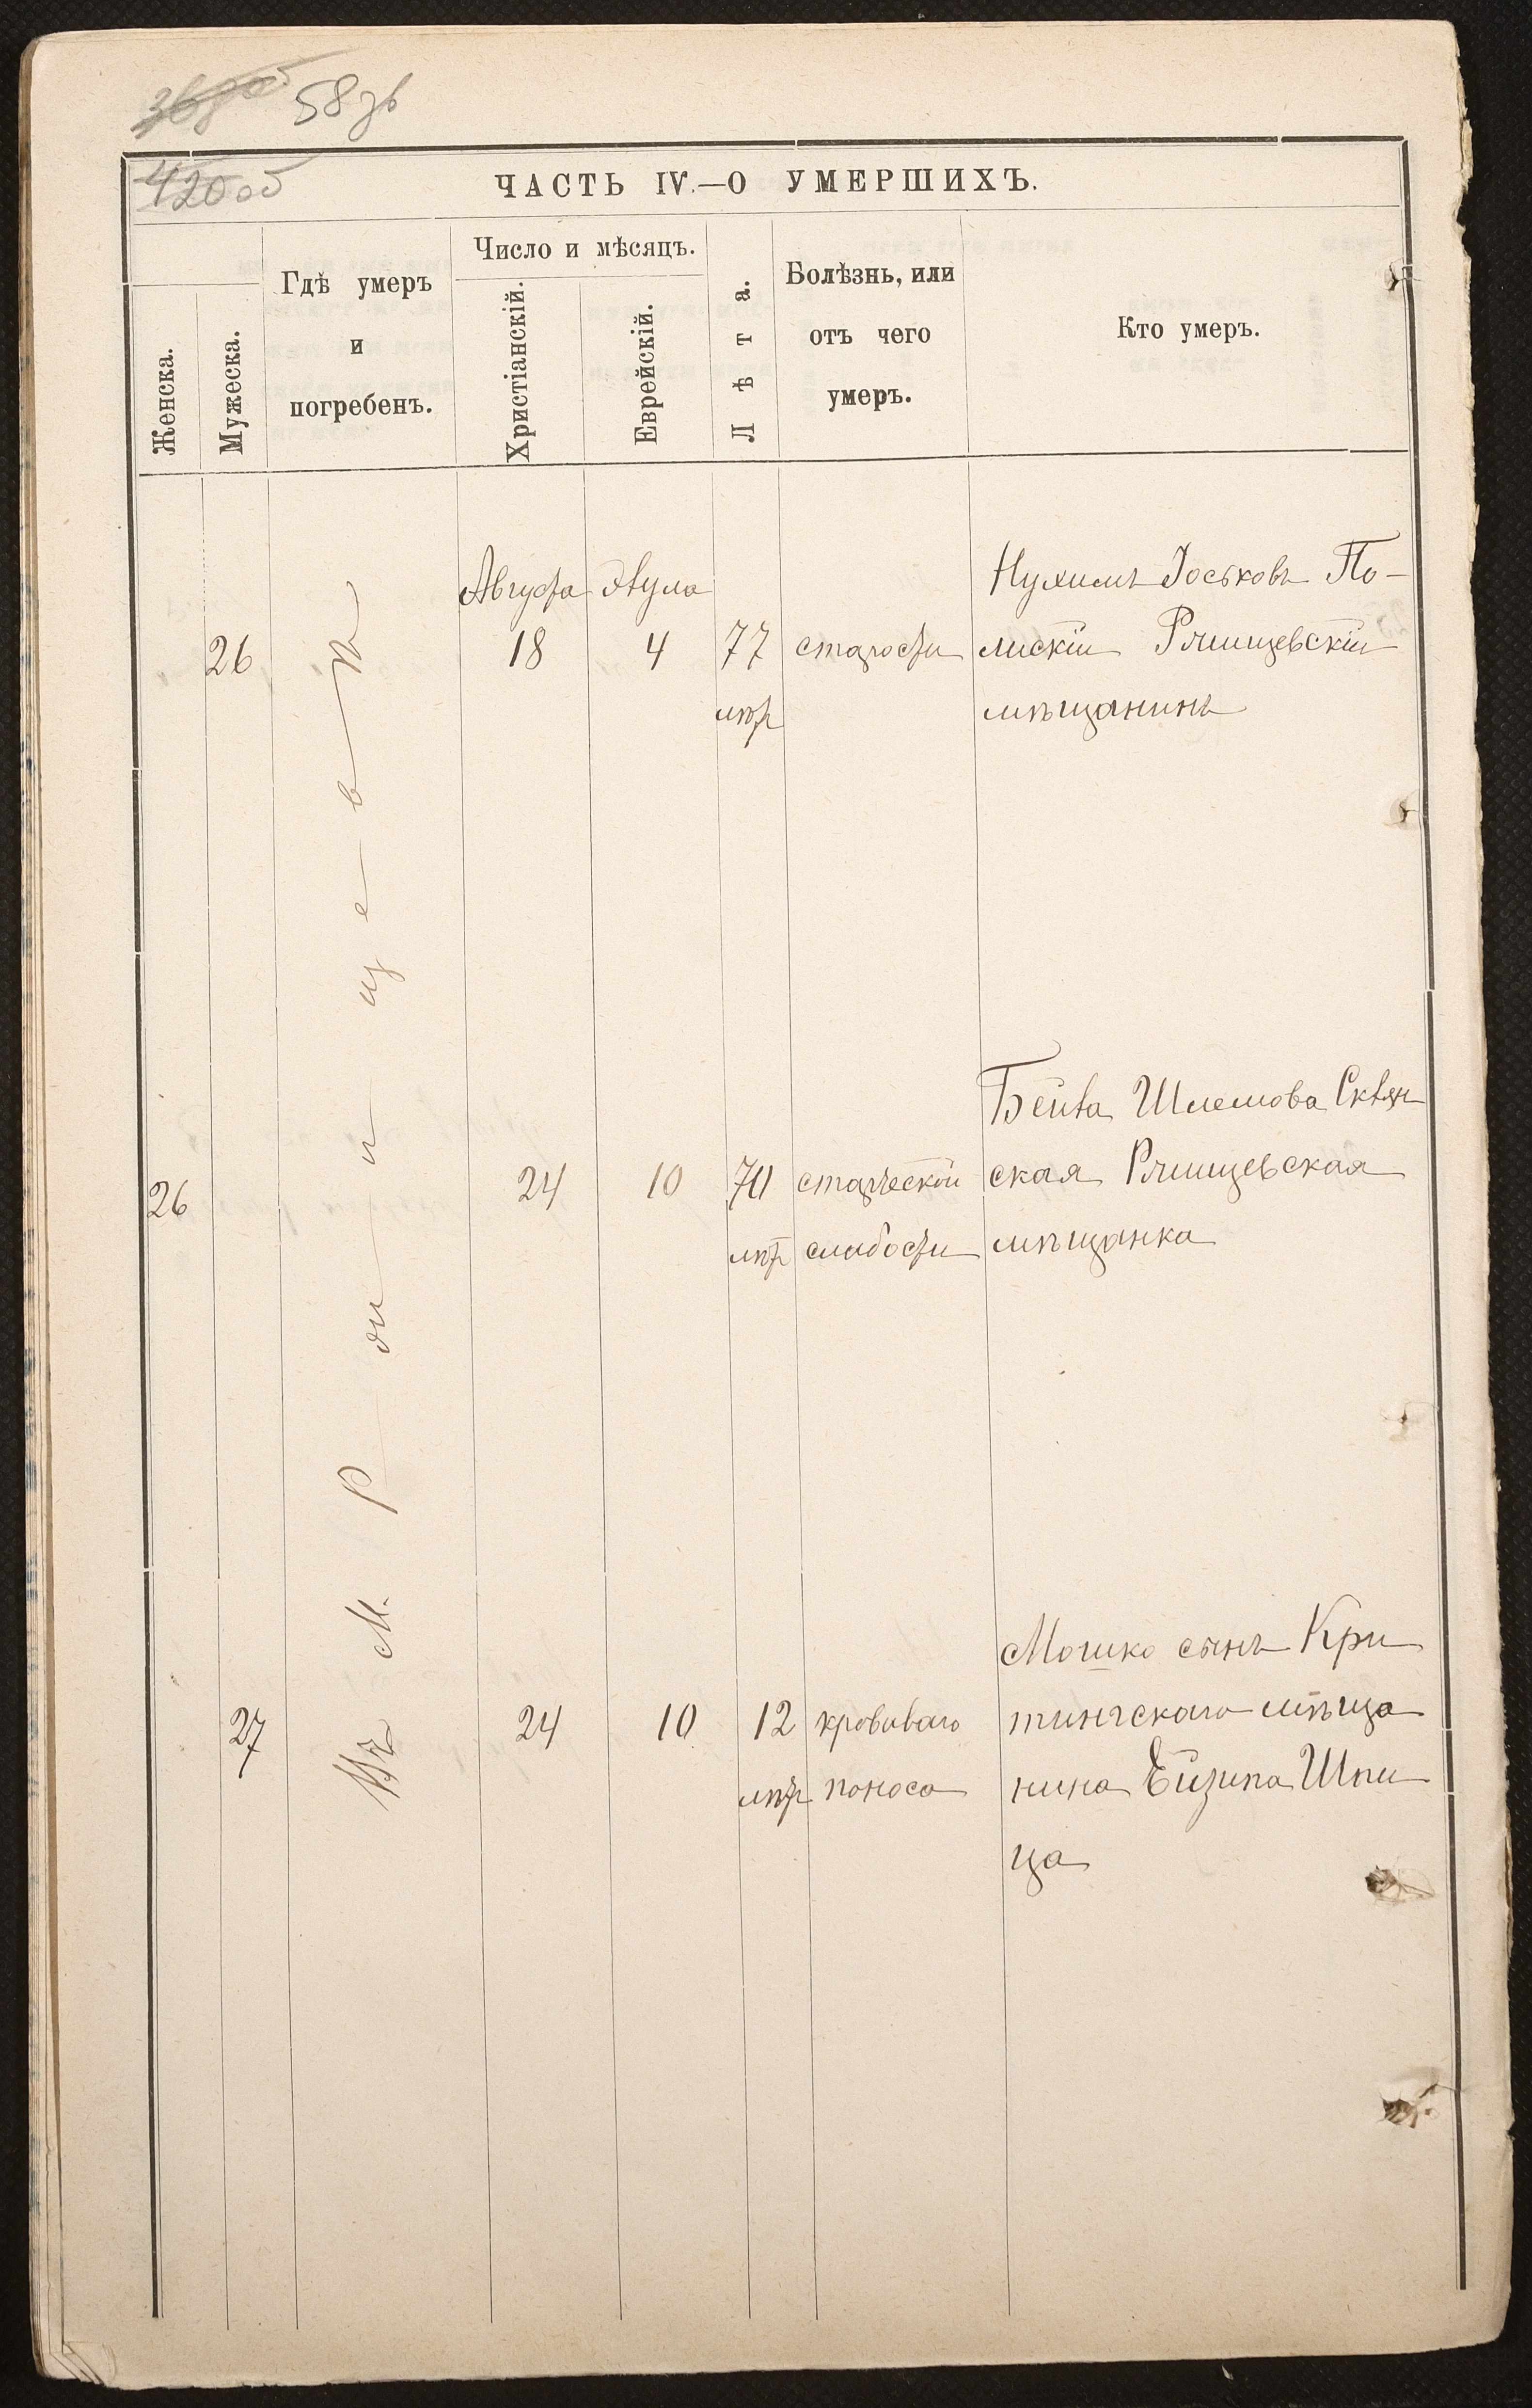 58 зв
420 об
ЧАСТЬ IV.—О УМЕРШИХЪ.
Женска.
Мужеска.
Гдѣ умеръ
и
погребенъ.
Число и мѣсяцъ.
Христіанскій.
Еврейскій.
Лѣта.
Болѣзнь, или
отъ чего
умеръ.
Кто умеръ.
Въ М. Ржищевѣ
Августа Элула
26 18 4 77 старости
лѣт
Нухимъ Іоськовъ По-
лискій Ржищевскій
мѣщанинъ
26 24 10 70 старческой
лѣт слабости
Бейла Шлемова Сквир
ская Ржищевская
мѣщанка
27 24 10 12 кроваваго
лѣт поноса
Мошко сынъ Кри
тингскаго мѣща
нина Ейзика Шпи
ца